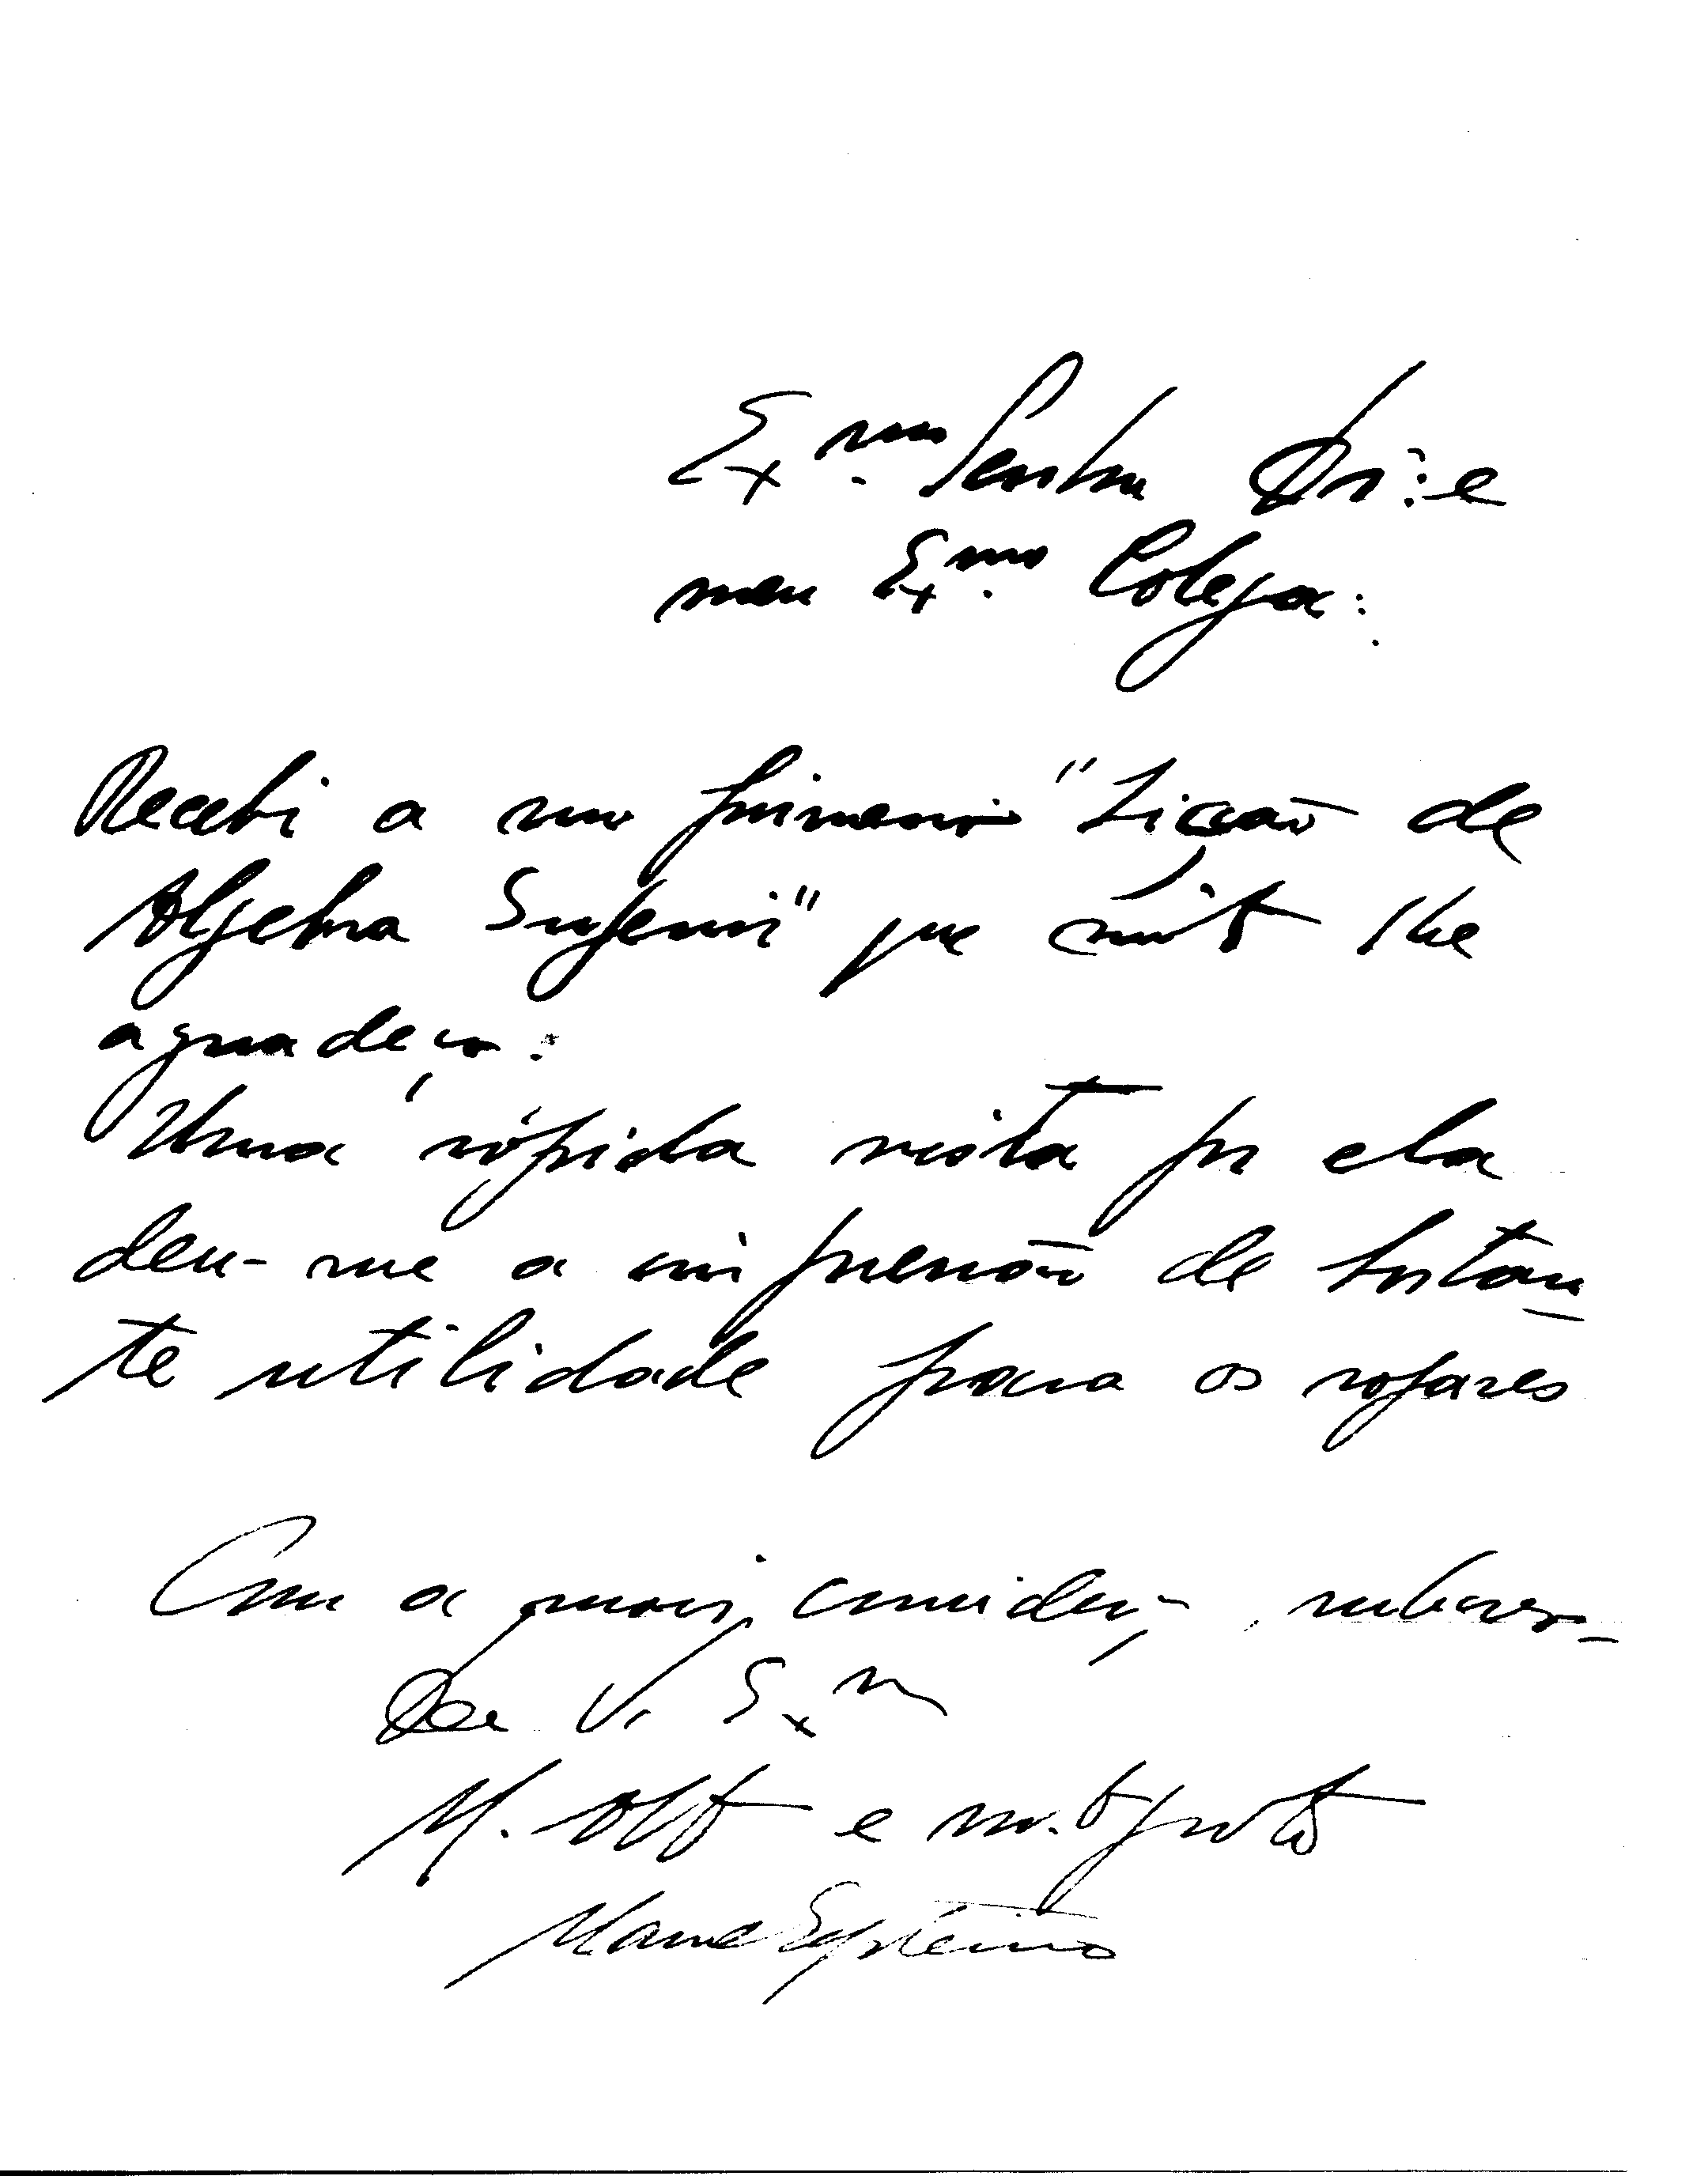 Ex.mo Senhor Dr.: e
meu Ex.mo Colega:
Recebi a sua primeira "Lição de
Algebra Superior" que muito lhe
agradeço.
Uma rápida vista por ela
deu-me a impressão de bastan-
te utilidade para os rapazes
Com a maior consideração, subscrevo-
De V. Ex.
M. Att.º e m.to grato